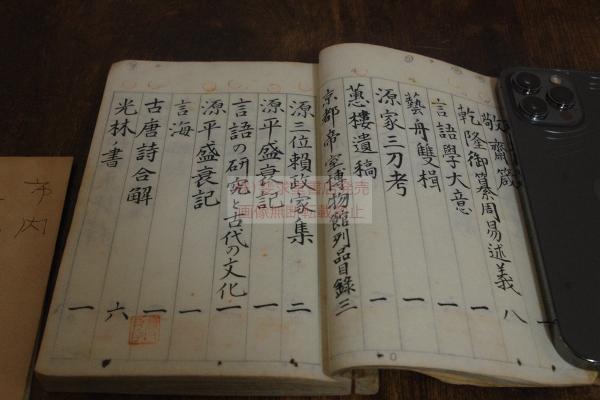 敬齋箴 一
乾隆御纂周易述義 八
言語學大意 一
藝舟雙楫 一
源家三刀考 一
蔥樓遺稿 一
京都帝室博物館列品目錄 三
源三位賴政家集 二
源平盛衰記 一
言語の研究と古代の文化 一
源平盛衰記 一
言海 一
古唐詩合解 六
光林ノ書 一
市内
画像無断転載禁止